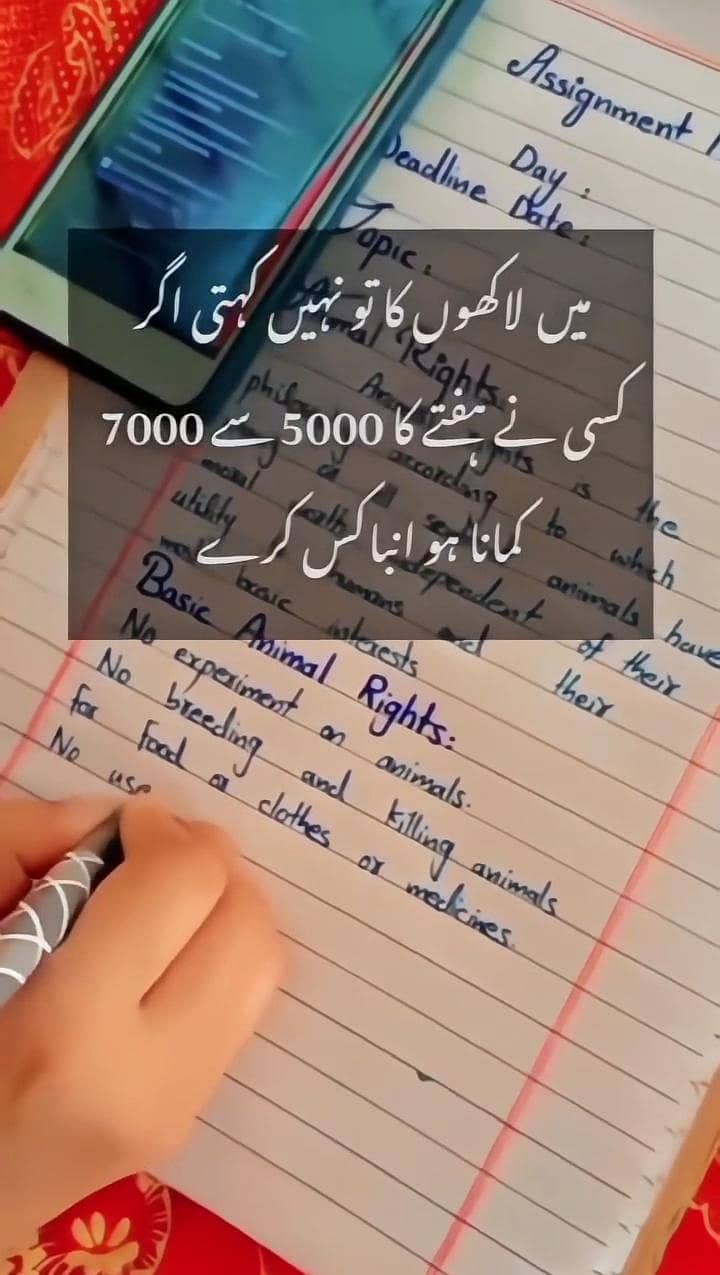 Assignment
Day :
Deadline Date :
Topic :
میں لاکھوں کا تو نہیں کہتی اگر
کسی نے ہفتے کا 5000 سے 7000
کمانا ہو انباکس کرے
Rights
is the
according to which
animals have
independent of their
humans and their
basic interests
Basic Animal Rights:
No experiment on animals.
No breeding and killing animals
for food or clothes or medicines.
No use